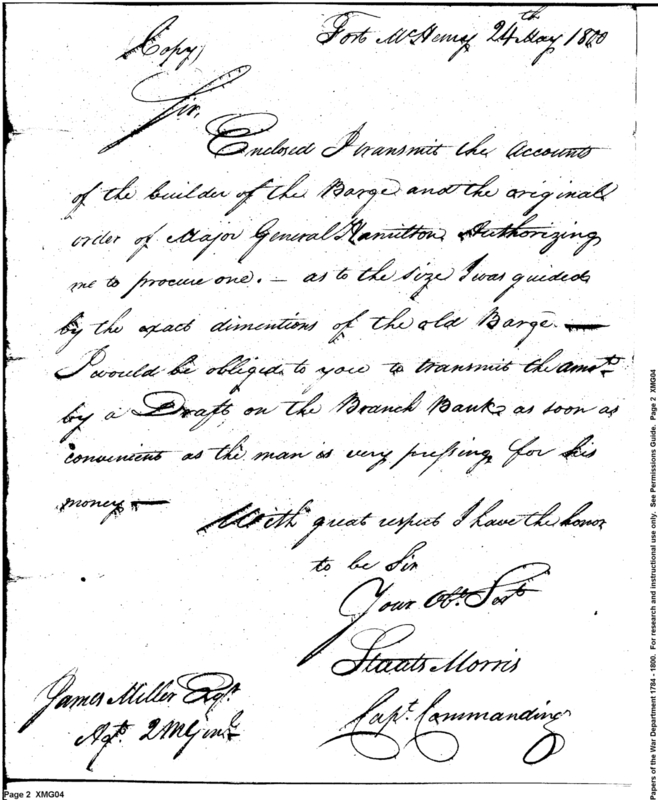 Fort McHenry 24th May 1800
Copy
Sir,
Enclosed I transmit the Accounts
of the builder of the Barge and the original
order of Major General Hamilton Authorizing
me to procure one. — as to the size I was guided
by the exact dimentions of the old Barge. —
I would be obliged to you to transmit the amot.
by a Draft on the Branch Bank as soon as
convenient as the man is very pressing for his
money —
With great respect I have the honor
to be Sir
Your Obt. Sert.
Staats Morris
Capt. Commanding
James Miller Esqr.
Agt. 2MGenl.
Page 2 XMG04
Papers of the War Department 1784 - 1800. For research and instructional use only. See Permissions Guide. Page 2 XMG04